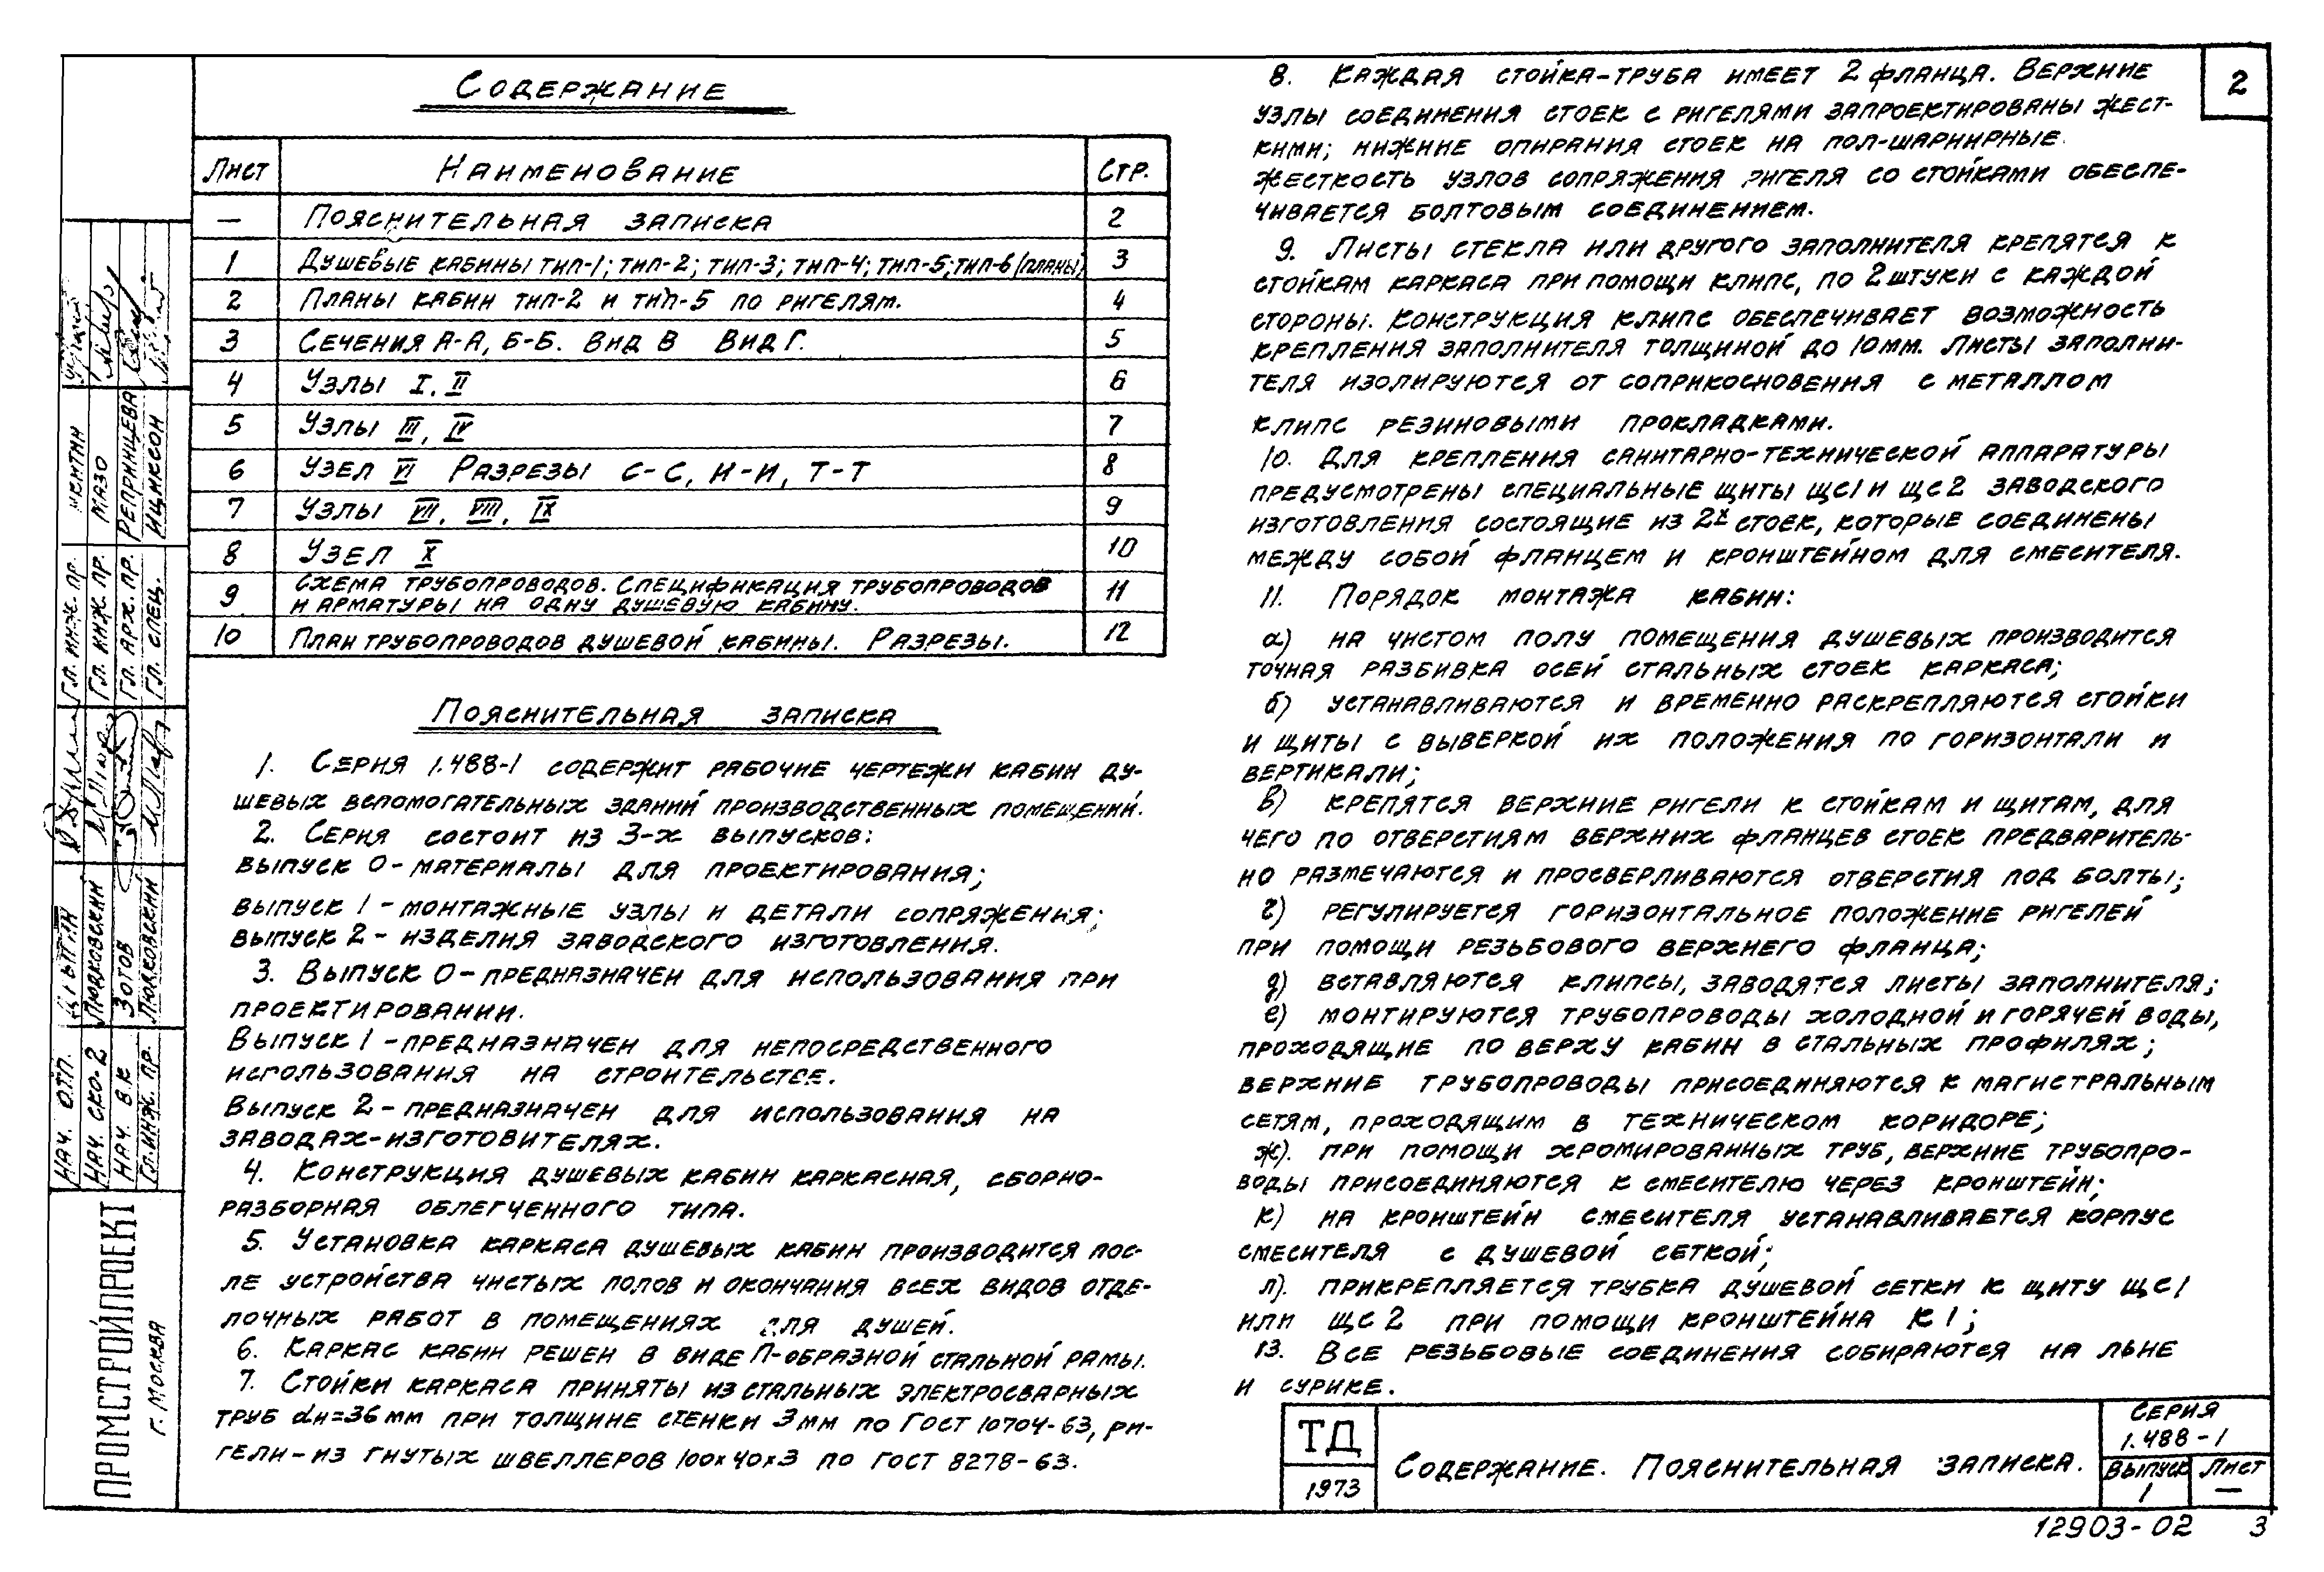 Содержание
Лист Наименование Стр.
— Пояснительная записка 2
1 Душевые кабины тип-1; тип-2; тип-3; тип-4; тип-5; тип-6 (планы) 3
2 Планы кабин тип-2 и тип-5 по ригелям. 4
3 Сечения А-А, Б-Б. Вид В Вид Г. 5
4 Узлы I, II 6
5 Узлы III, IV 7
6 Узел VI Разрезы С-С, И-И, Т-Т 8
7 Узлы VII, VIII, IX 9
8 Узел X 10
9 Схема трубопроводов. Спецификация трубопроводов
и арматуры на одну душевую кабину. 11
10 План трубопроводов душевой кабины. Разрезы. 12
Пояснительная записка
1. Серия 1.488-1 содержит рабочие чертежи кабин ду-
шевых вспомогательных зданий производственных помещений.
2. Серия состоит из 3-х выпусков:
выпуск 0 - материалы для проектирования;
выпуск 1 - монтажные узлы и детали сопряжения;
выпуск 2 - изделия заводского изготовления.
3. Выпуск 0 - предназначен для использования при
проектировании.
Выпуск 1 - предназначен для непосредственного
использования на строительстве.
Выпуск 2 - предназначен для использования на
заводах-изготовителях.
4. Конструкция душевых кабин каркасная, сборно-
разборная облегченного типа.
5. Установка каркаса душевых кабин производится пос-
ле устройства чистых полов и окончания всех видов отде-
лочных работ в помещениях для душей.
6. Каркас кабин решен в виде П-образной стальной рамы.
7. Стойки каркаса приняты из стальных электросварных
труб dн=36мм при толщине стенки 3мм по ГОСТ 10704-63, ри-
гели - из гнутых швеллеров 100х40х3 по ГОСТ 8278-63.
8. Каждая стойка-труба имеет 2 фланца. Верхние
узлы соединения стоек с ригелями запроектированы жест-
кими; нижние опирания стоек на пол-шарнирные.
Жесткость узлов сопряжения ригеля со стойками обеспе-
чивается болтовым соединением.
9. Листы стекла или другого заполнителя крепятся к
стойкам каркаса при помощи клипс, по 2 штуки с каждой
стороны. Конструкция клипс обеспечивает возможность
крепления заполнителя толщиной до 10мм. Листы заполни-
теля изолируются от соприкосновения с металлом
клипс резиновыми прокладками.
10. Для крепления санитарно-технической аппаратуры
предусмотрены специальные щиты ЩС1 и ЩС2 заводского
изготовления состоящие из 2х стоек, которые соединены
между собой фланцем и кронштейном для смесителя.
11. Порядок монтажа кабин:
а) на чистом полу помещения душевых производится
точная разбивка осей стальных стоек каркаса;
б) устанавливаются и временно раскрепляются стойки
и щиты с выверкой их положения по горизонтали и
вертикали;
в) крепятся верхние ригели к стойкам и щитам, для
чего по отверстиям верхних фланцев стоек предваритель-
но размечаются и просверливаются отверстия под болты;
г) регулируется горизонтальное положение ригелей
при помощи резьбового верхнего фланца;
д) вставляются клипсы, заводятся листы заполнителя;
е) монтируются трубопроводы холодной и горячей воды,
проходящие по верху кабин в стальных профилях;
верхние трубопроводы присоединяются к магистральным
сетям, проходящим в техническом коридоре;
ж). при помощи хромированных труб, верхние трубопро-
воды присоединяются к смесителю через кронштейн;
к) на кронштейн смесителя устанавливается корпус
смесителя с душевой сеткой;
л). прикрепляется трубка душевой сетки к щиту ЩС1
или ЩС2 при помощи кронштейна К1;
13. Все резьбовые соединения собираются на льне
и сурике.
2
ТД
1973
Содержание. Пояснительная записка.
Серия
1.488-1
Выпуск Лист
1 —
12903-02 3
ПРОМСТРОЙПРОЕКТ
г. Москва
Нач. ОТП
Нач. СКО-2 Людковский
Нач. В.К Зотов
Гл. инж. пр. Людковский
Гл. инж. пр.
Гл. инж. пр. Мазо
Гл. арх. пр. Репринцева
Гл. спец. Ицииксон